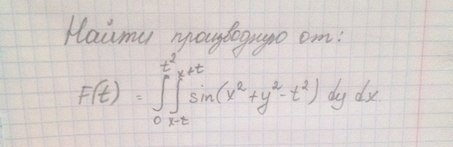 Найти производную от:
F(t) = ∫₀^{t²} ∫_{x-t}^{x+t} sin(x²+y²-t²) dy dx